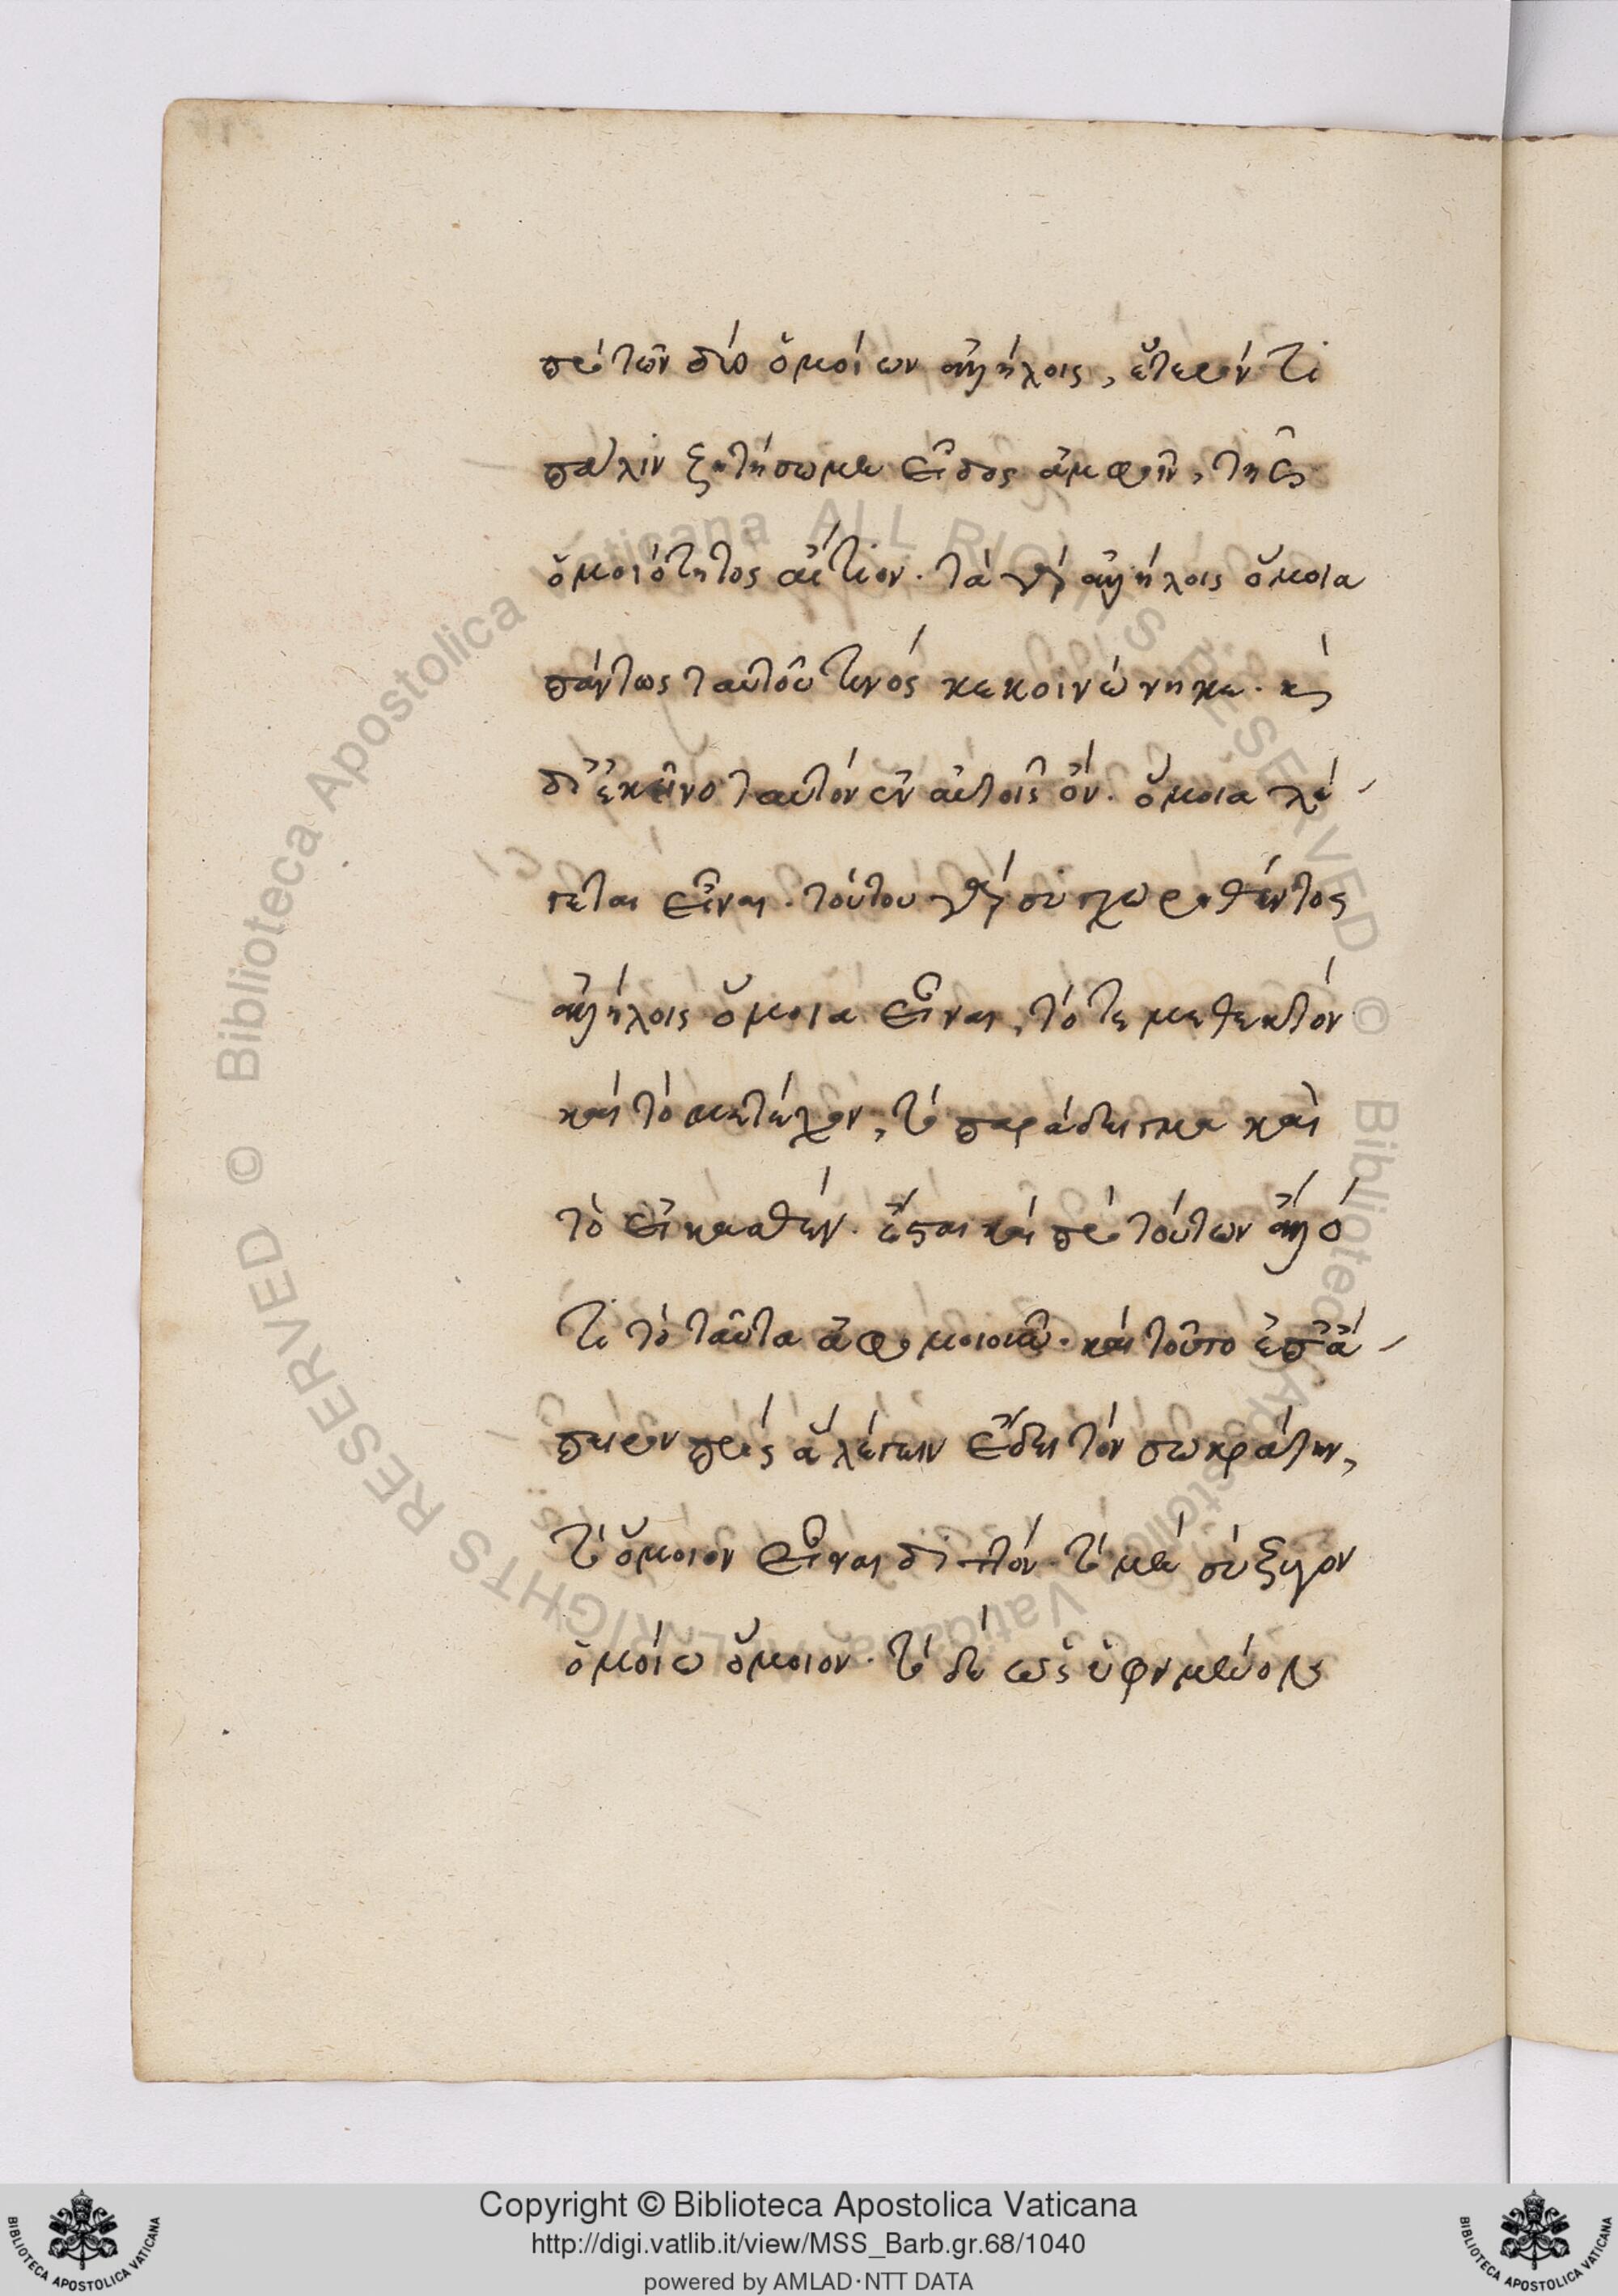 πρὸ τῶν δύο ὁμοίων ἀλλήλοις, ἕτερόν τι
πάλιν ζητήσωμεν εἶδος ἀμφοῖν, τῆς
ὁμοιότητος αἴτιον. τὰ γὰρ ἀλλήλοις ὅμοια
πάντως ταὐτοῦ τινός κεκοινώνηκε. κὶ
δι' ἐκεῖνο ταυτὸν ἐν αὐτοῖς ὄν. ὅμοια λέ-
γεται εἶναι. τούτου γὰρ συγχωρηθέντος
ἀλλήλοις ὅμοια εἶναι, τό τε μεθεκτὸν
καὶ τὸ μετέχον, τὸ παράδειγμα καὶ
τὸ εἰκασθὲν. ἔσται καὶ πρὸ τούτων ἄλλό
τι τὸ ταῦτα ἀφομοιοῦν. καὶ τοῦτο ἐπ' ἄ-
πειρον πρὸς ἃ λέγειν ἔδει τὸν σωκράτην,
τὸ ὅμοιον εἶναι διττόν. τὸ μὲν σύζυγον
ὁμοίω ὅμοιον. τὸ δὲ ὡς ὑφημένον
Copyright © Biblioteca Apostolica Vaticana
http://digi.vatlib.it/view/MSS_Barb.gr.68/1040
powered by AMLAD·NTT DATA
BIBLIOTECA APOSTOLICA VATICANA
BIBLIOTECA APOSTOLICA VATICANA
© Biblioteca Apostolica Vaticana ALL RIGHTS RESERVED
© Biblioteca Apostolica Vaticana ALL RIGHTS RESERVED